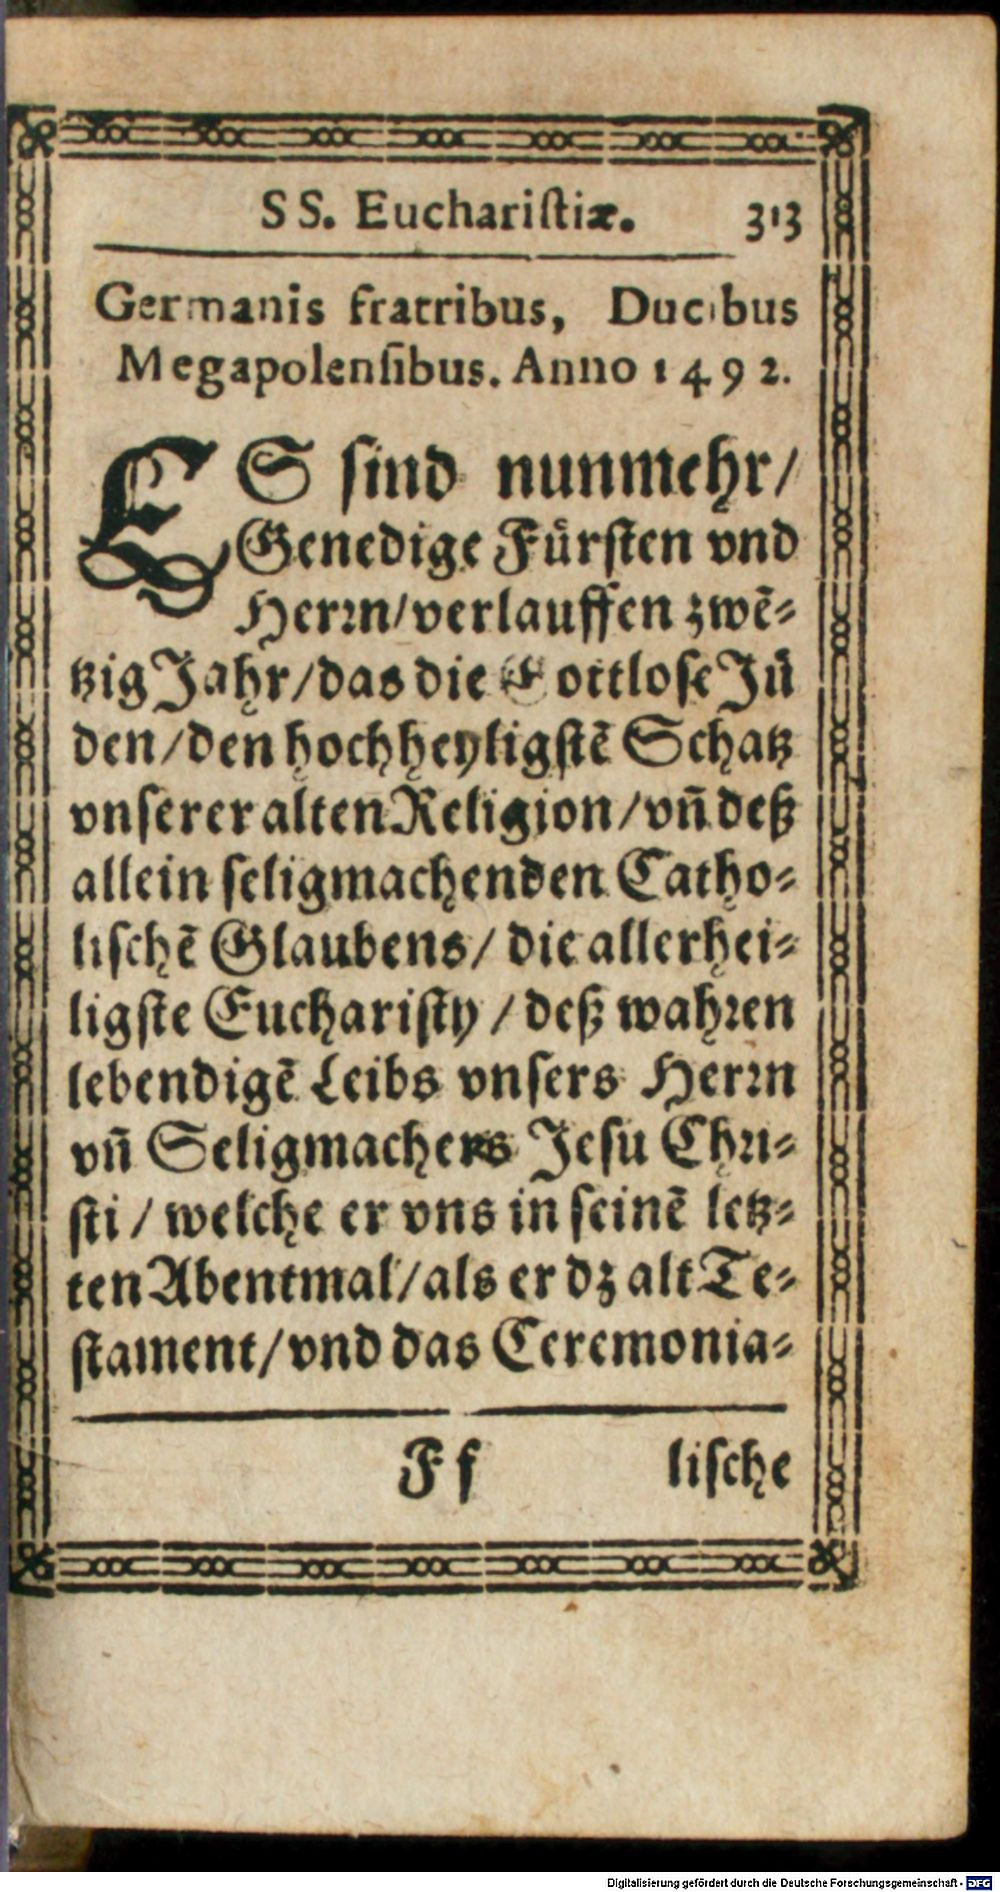 SS. Euchariſtiæ. 313
Germanis fratribus, Ducibus
Megapolenſibus. Anno 1492.
ES ſind nunmehr/
Genedige Fürſten vnd
Herꝛn/verlauffen zwē-
tzig Jahr/das die Gottloſe Jü
den/den hochheyligſtē Schatz
vnſerer alten Religion/vn̄ deß
allein ſeligmachenden Catho-
liſchē Glaubens/ die allerhei-
ligſte Euchariſty / deß wahꝛen
lebendigē Leibs vnſers Herꝛn
vn̄ Seligmachers Jeſu Chꝛi-
ſti / welche er vns in ſeinē letz-
ten Abentmal/als er dz alt Te-
ſtament/vnd das Ceremonia-
Ff liſche
Digitalisierung gefördert durch die Deutsche Forschungsgemeinschaft - DFG